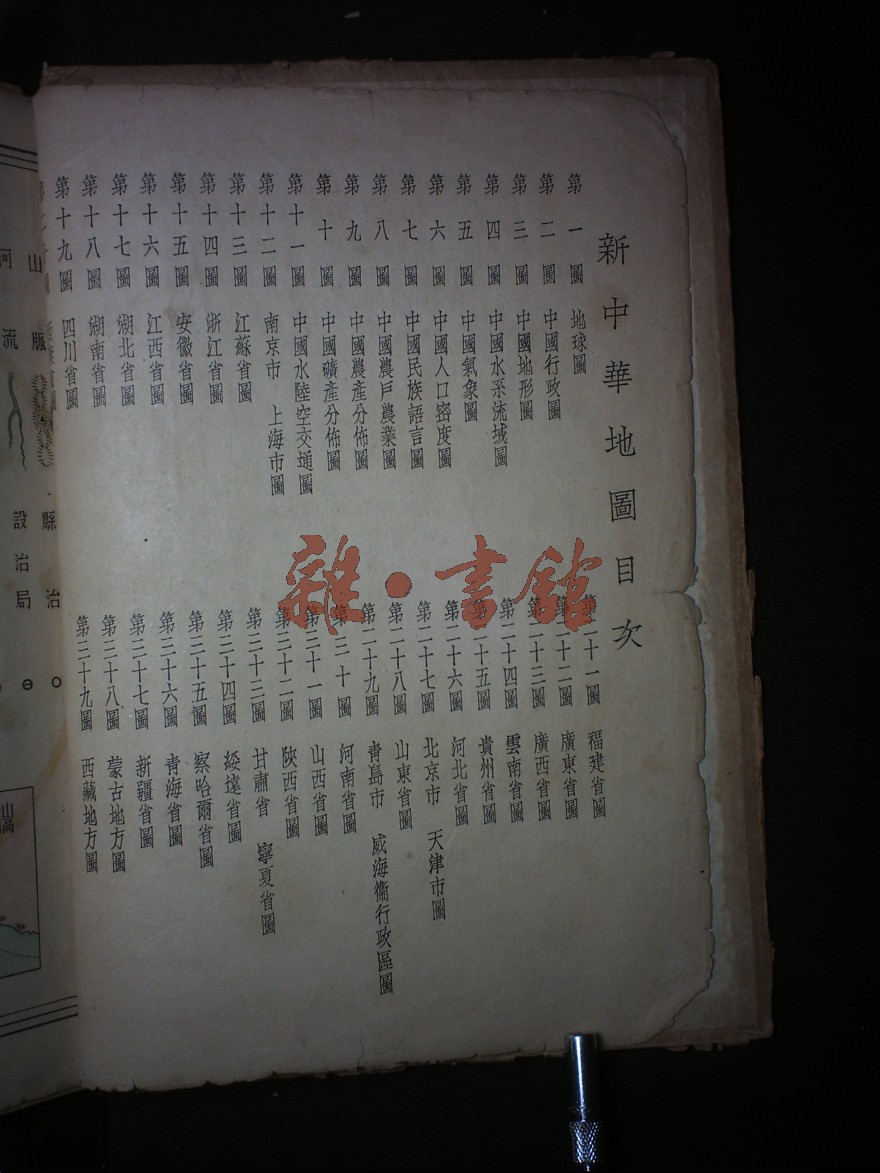 新中華地圖目次
第一圖 地球圖
第二圖 中國行政圖
第三圖 中國地形圖
第四圖 中國水系流域圖
第五圖 中國氣象圖
第六圖 中國人口密度圖
第七圖 中國民族語言圖
第八圖 中國農戶農業圖
第九圖 中國農產分佈圖
第十圖 中國礦產分佈圖
第十一圖 中國水陸空交通圖
第十二圖 南京市 上海市圖
第十三圖 江蘇省圖
第十四圖 浙江省圖
第十五圖 安徽省圖
第十六圖 江西省圖
第十七圖 湖北省圖
第十八圖 湖南省圖
第十九圖 四川省圖
第二十一圖 福建省圖
第二十二圖 廣東省圖
第二十三圖 廣西省圖
第二十四圖 雲南省圖
第二十五圖 貴州省圖
第二十六圖 河北省圖
第二十七圖 北京市 天津市圖
第二十八圖 山東省圖
第二十九圖 青島市 威海衞行政區圖
第三十圖 河南省圖
第三十一圖 山西省圖
第三十二圖 陝西省圖
第三十三圖 甘肅省 寧夏省圖
第三十四圖 綏遠省圖
第三十五圖 察哈爾省圖
第三十六圖 青海省圖
第三十七圖 新疆省圖
第三十八圖 蒙古地方圖
第三十九圖 西藏地方圖
雜·書館
山脈
縣治
河流
設治局